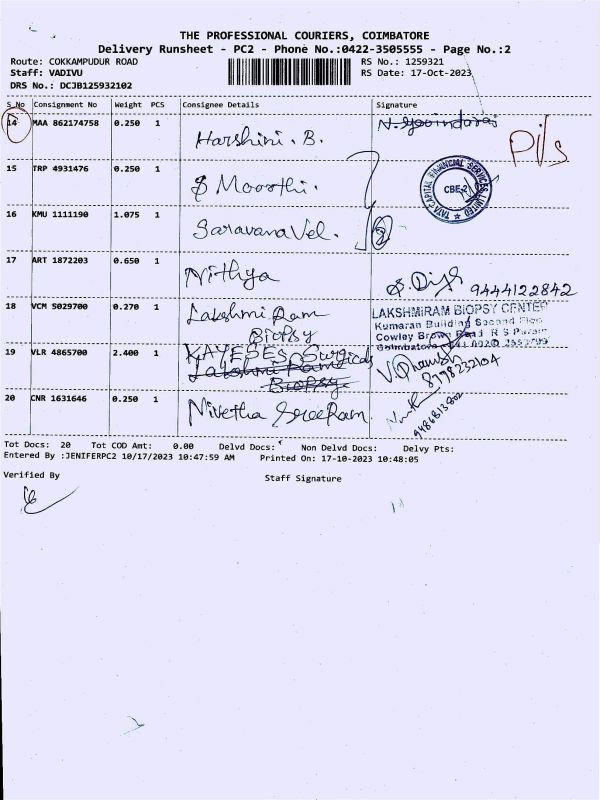 THE PROFESSIONAL COURIERS, COIMBATORE
Delivery Runsheet - PC2 - Phone No.:0422-3505555 - Page No.:2
Route: COKKAMPUDUR ROAD RS No.: 1259321
Staff: VADIVU RS Date: 17-Oct-2023
DRS No.: DCJB125932102
S_No Consignment No Weight PCS Consignee Details Signature
14 MAA 862174758 0.250 1 Harshini. B. N. Govindaraj
Pils
15 TRP 4931476 0.250 1 S Moorthi.
TATA CAPITAL FINANCIAL SERVICES LIMITED
CBE-2
16 KMU 1111190 1.075 1 Saravana Vel.
17 ART 1872203 0.650 1 Nithya 9444122842
18 VCM S029700 0.270 1 Lakshmi Ram
Biopsy
LAKSHMIRAM BIOPSY CENTER
Kumaran Building Second Floor
Cowley Brown Road R S Puram
19 VLR 4865700 2.400 1 KAYESES Surgicals
Lakshmi Rame
Biopsy
8798232104
20 CNR 1631646 0.250 1 Nivetha SreeRam
Tot Docs: 20 Tot COD Amt: 0.00 Delvd Docs: Non Delvd Docs: Delvy Pts:
Entered By :JENIFERPC2 10/17/2023 10:47:59 AM Printed On: 17-10-2023 10:48:05
Verified By Staff Signature